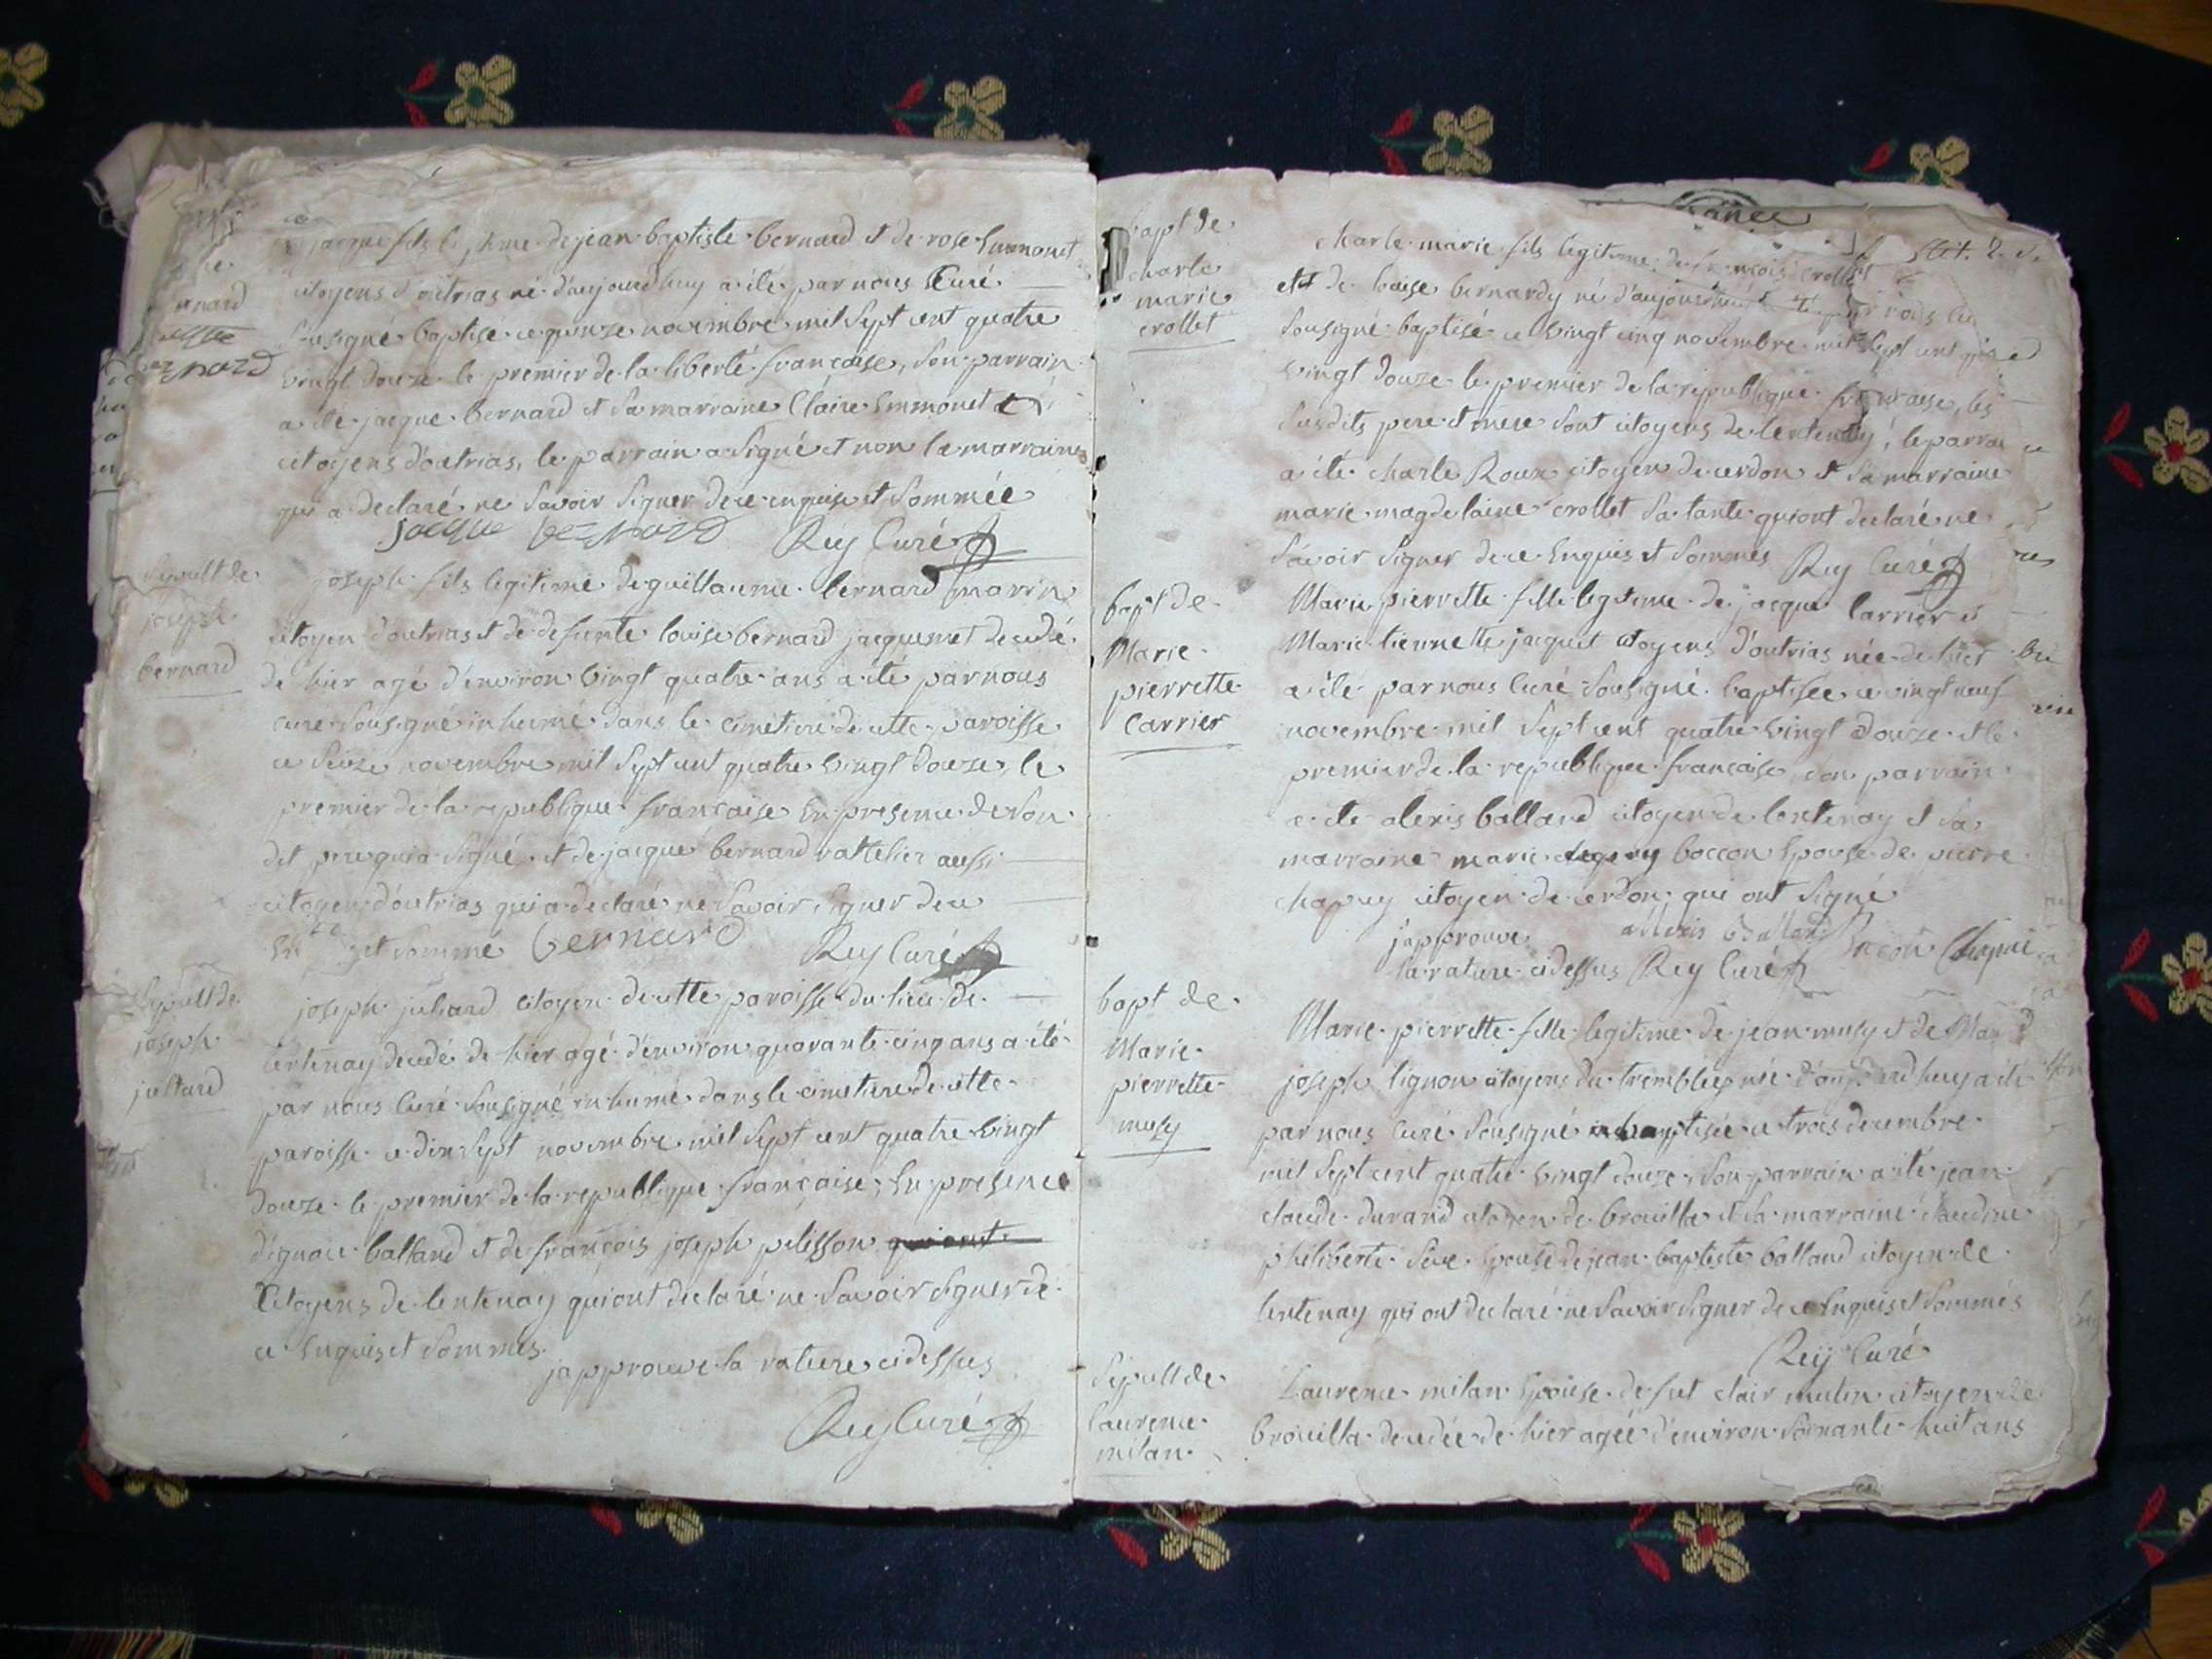 jacque fils legitime de jean baptiste bernard et de rose Emmonet
citoyens d'outrias né d'aujourdhuy a été par nous Curé
sousigné baptisé ce quinze novembre mil sept cent quatre
vingt douze le premier de la liberté française, son parrain
a été jacque bernard et sa marraine Claire Emmonet
citoyens d'outrias, le parrain a signé et non la marraine
qui a declaré ne savoir signer de ce enquise et sommée
jacque bernard Rey Curé
Sepult de
joseph
bernard
joseph fils legitime de guillaume bernard marrin
citoyen d'outrias et de defunte louise bernard jacquemet decedé
de hier agé d'environ vingt quatre ans a été par nous
curé sousigné inhumé dans le cimetiere de cette paroisse
ce seize novembre mil sept cent quatre vingt douze, le
premier de la republique française en presence de son
dit pere qui a signé et de jacque bernard rattelier aussi
citoyen d'outrias qui a declaré ne savoir signer de ce
et sommé bernard Rey Curé
Sepult de
joseph
julliard
joseph juliard citoyen de cette paroisse du lieu de
lentenay decedé de hier agé d'environ quarante cinq ans a été
par nous Curé sousigné inhumé dans le cimetiere de cette
paroisse ce dix sept novembre mil sept cent quatre vingt
douze le premier de la republique française, en presence
d'ignace balland et de françois joseph pelisson qui ont
Citoyens de lentenay qui ont declaré ne savoir signer de
ce enquis et sommés.
japprouve la rature cidessus
Rey Curé
bapt de
charle
marie
crollet
charle marie fils legitime de françois crollet
et de loise bernardy né d'aujourdhui a été par nous
sousigné baptisé ce vingt cinq novembre mil sept cent
vingt douze le premier de la republique française, les
susdits pere et mere sont citoyens de lentenay, le parrain
a été charle Roux citoyen de cerdon et sa marraine
marie magdelaine crollet sa tante qui ont declaré ne
savoir signer de ce enquis et sommés Rey Curé
bapt de
Marie
pierrette
Carrier
Marie pierrette fille legitime de jacque Carrier et
Marie tiennette jacquet citoyens d'outrias née de hier
a été par nous Curé sousigné baptisée ce vingt neuf
novembre mil sept cent quatre vingt douze et le
premier de la republique française, son parrain
a été alexis balland citoyen de lentenay et sa
marraine marie boccon epouse de pierre
chapuy citoyen de cerdon qui ont signé
japprouve
la rature cidessus Rey Curé
bapt de
Marie
pierrette
musy
Marie pierrette fille legitime de jean musy et de Marie
joseph lignon citoyens du trembley née d'aujourdhuy a été
par nous Curé sousigné baptisée ce trois decembre
mil sept cent quatre vingt douze, son parrain a été jean
claude durand citoyen de brouilla et sa marraine claudine
philiberte seve epouse de jean baptiste balland citoyen de
lentenay qui ont declaré ne savoir signer de ce enquis et sommés
Rey Curé
Sepult de
laurence
milan
Laurence milan epouse de fut clair mulin citoyen de
brouilla decedée de hier agée d'environ soixante huit ans